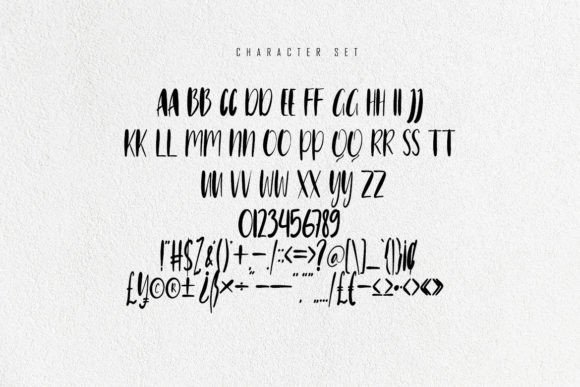 CHARACTER SET
AA BB CC DD EE FF GG HH II JJ
KK LL MM NN OO PP QQ RR SS TT
UU VV WW XX YY ZZ
0123456789
!"#$%&'()*+,-./:;<=>?@[\]_`{|}¡¢
£¥©®±¿ß×÷–—‘’“”…/£€−≤≥•‹›«»